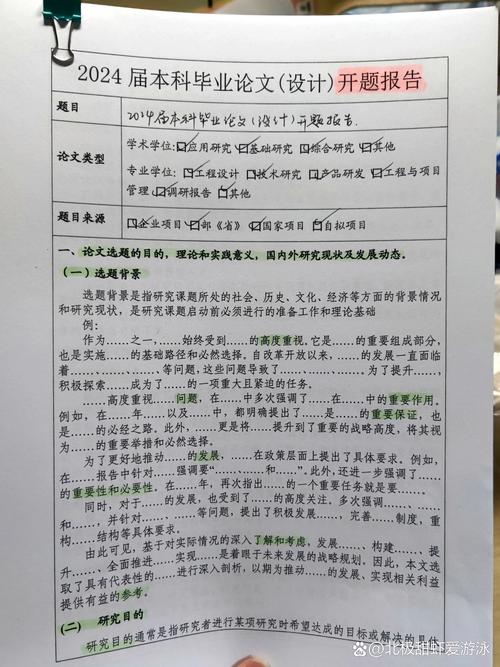 2024届本科毕业论文(设计)开题报告
题目 2024届本科毕业论文(设计)开题报告.
论文类型 学术学位:☑应用研究 ☑基础研究 ☑综合研究 ☑其他
专业学位:☑工程设计 ☑技术研究 ☑产品研发 ☑工程与项目
管理 ☑调研报告 ☑其他
题目来源 ☑企业项目 ☑部《省》 ☑国家项目 ☑自拟项目
一、论文选题的目的，理论和实践意义，国内外研究现状及发展动态。
(一)选题背景
选题背景是指研究课题所处的社会、历史、文化、经济等方面的背景情况
和研究现状，是研究课题启动前必须进行的准备工作和理论基础
例:
作为……之一，……始终受到……的高度重视。它是……的重要组成部分，
也是实施……的基础路径和必然选择。自改革开放以来，……的发展一直面临
着……、……、……等问题，这些问题导致了……、……。为了提升……，
积极探索……成为了……的一项重大且紧迫的任务。
……高度重视……问题，在……中多次强调了……在……中的重要作用。
例如，在……年……以及……中，都明确提出了……是……的重要保证，也
是……的必经之路。此外，……更是将……提升到了重要的战略高度，将其视
为……的重要举措和必然选择。
为了更好地推动……的发展，……在政策层面上提出了具体要求。例如，
在……报告中针对……强调要“……、……和……”。此外，还进一步强调了……
的重要性和必要性。在……年，再次指出……的一个重要任务就是要……
同时，对于……的发展，也受到了……的高度关注。多次强调……、……
和……，并针对……、……等问题，提出了积极发展……，完善……制度，重
构……结构等具体要求。
由此可见，基于对实际情况的深入了解和考虑，发展……、构建……、提
升……、全面推进……实现……是着眼于未来发展的战略规划。因此，本文选
取了具有代表性的……进行深入剖析，以期为推动……的发展、实现相关利益
提供有益的参考。
(二) 研究目的
研究目的通常是指研究者进行某项研究时希望达成的目标或解决的具体
@北极甜虾爱游泳